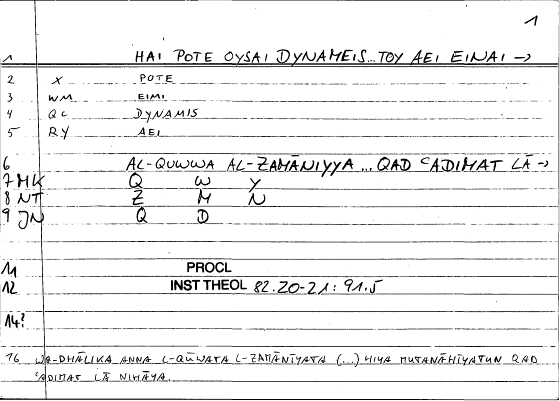 1
1 HAI POTE OYSAI DYNAMEIS...TOY AEI EINAI →
2 X POTE
3 WM EIMI
4 QC DYNAMIS
5 RY AEI
6 AL-QUWWA AL-ZAMĀNIYYA ... QAD ʿADIMAT LĀ →
7 MK Q W Y
8 NT Z M N
9 JN Q D
11 PROCL
12 INST THEOL 82.20-21: 91.5
14?
16 WA-DHĀLIKA ANNA L-QŪWATA L-ZAMĀNĪYATA (...) HIYA MUTANĀHIYATUN QAD
ʿADIMAT LĀ NIHĀYA.